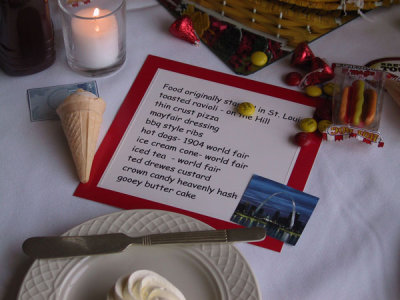 Food originally started in St. Louis
toasted ravioli - on the Hill
thin crust pizza
mayfair dressing
bbq style ribs
hot dogs- 1904 world fair
ice cream cone- world fair
iced tea - world fair
ted drewes custard
crown candy heavenly hash
gooey butter cake